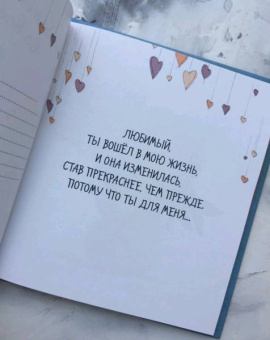 ЛЮБИМЫЙ,
ТЫ ВОШЁЛ В МОЮ ЖИЗНЬ,
И ОНА ИЗМЕНИЛАСЬ,
СТАВ ПРЕКРАСНЕЕ, ЧЕМ ПРЕЖДЕ.
ПОТОМУ ЧТО ТЫ ДЛЯ МЕНЯ...